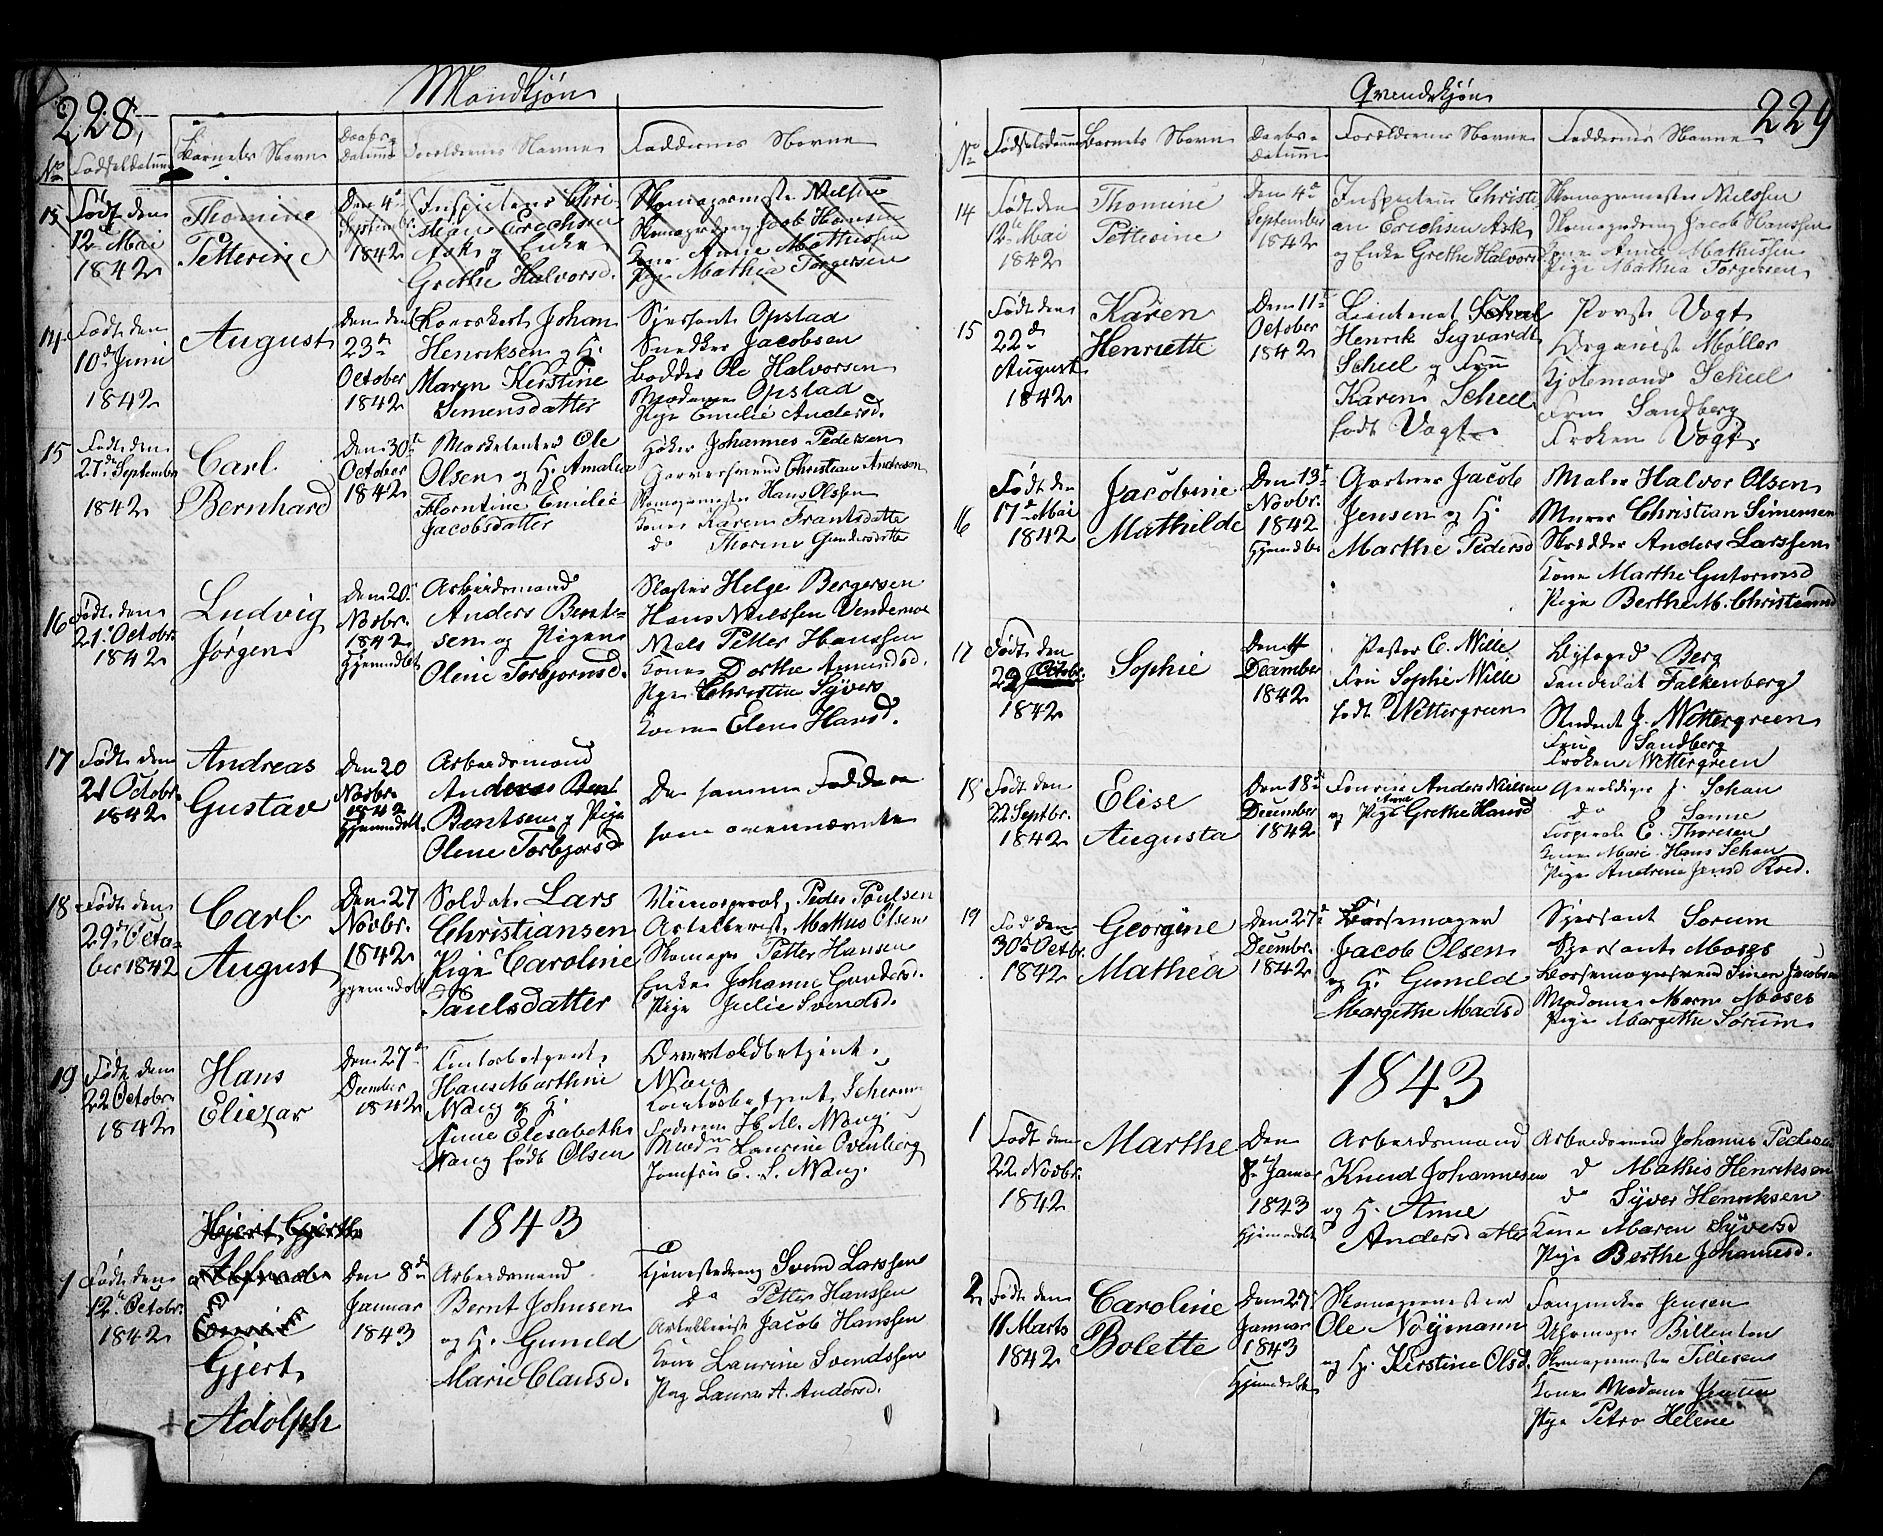 228,
Mandkjøn
No Fødselsdatum Barnets Navn Daabs Datum Forældrenes Navne Faddernes Navne
13 Født den 12 Mai 1842
Thomine Petterine
Den 4de Septembr. 1842
Inspecteur Christian Erichsen Ask og Enke Grethe Halvorsd.
Skomagermester Nielsen
Skomagerdreng Jacob Hansen
Kone Anne Mathissen
Pige Mathia Torgersen
14 Født den 10de Juni 1842
August
Den den 23de October 1842
Johan Henriksen og H. Maren Kirstine Simensdatter
Sjersant Opstad
Snedker Jacobsen
Bødker Ole Halvorsen
Madame Opstad
Pige Emilie Andersd.
15 Født den 27de September 1842
Carl Bernhard
Den 30te October 1842
Marketenter Ole Olsen og H. Amalia Florntine Emilie Jacobsdatter
Høker Johannes Pedersen
Garversvend Christian Andresen
Skomagermester Hans Olssen
Kone Karen Frantsdatter
do Thorine Gundersdatter
16 Født den 21. Octobr. 1842
Ludvig Jørgen
Den 20. Novbr. 1842 Hjemmdøbt
Arbeidsmand Anders Bentsen og Pigen Oline Torbjornsd.
Slagter Helge Bergersen
Hans Nielssen
Niels Petter Hanssen
Kone Dorthe Amundsd.
Pige Christin Syvers
Kone Elen Hansd.
17 Født den 21 Octobr. 1842
Andreas Gustav
Den 20 Novbr. 1842 Hjemmedøbt.
Arbeidsmand Anders Bentsen og Pige Oline Torbjorsd.
De samme Faddere som ovennævnte
18 Født den 29de October 1842
Carl August
Den 27 Novbr. 1842 Hjemmedøbt
Soldat Lars Christiansen Pige Caroline Paulsdatter
Peder Poulsen
Artellerist Mathis Olsen
Skomager Petter Hansen
Enke Johanne Gunders.
Pige Julie Svendsd.
19 Født den 22 Octobr. 1842
Hans Eliezar
Den 27de December 1842
Hans Marthin Wang og H. Anne Elisabeth Wang født Olsen
Overtoldbetjent Wang
H. M. Wang
Madme Laurine Ovenberg
Jomfru E. S. Wang.
1843
1 Født den 12te Octobr. 1842
Gjert Adolph
Den 8de Januar 1843
Arbeidsmand Bernt Johnsen og H. Guneld Marie Clausd.
Tjenestedreng Svend Larssen
Do Petter Hanssen
Artellerist Jacob Hanssen
Kone Laurine Svendssen
Pige Laura A. Andersd.
229
Qvindekjøn
No Fødselsdatum Barnets Navn Daabs-Datum Forældrenes Navne Faddernes Navne
14 Født den 12te Mai 1842
Thomine Petterine
Den 4de September 1842
Inspecteur Christian Erichsen Ask og Enke Grethe Halvorsd
Skomagermester Nielssen
Skomagerdreng Jacob Hanssen
Kone Anne Mathissen
Pige Mathia Torgersen
15 Født den 22de August 1842
Karen Henriette
Den 11te October 1842
Lieutenat Henrik Sigvardt Scheel og Fru Karen Scheel født Vogt
Provst Vogt
Organist Møller
Scheel
Fru Sandberg
Frøken Vogt
16 Født den 17de Mai 1842
Jacobine Mathilde
Den 13de Novbr. 1842 Hjemdøbt
Gartner Jacob Jensen og H. Marthe Pedersd
Maler Halvor Olsen
Murer Christian Simensen
Skrædder Anders Larssen
Kone Marthe Guttormsd
Pige Berthe M. Christiansd
17 Født den 22 Octobr. 1842
Sophie
Den 4 December 1842
Pastor C. Wille Fru Sophie Wille født Wettergreen
Byfoged Berg
Candidat Falkenberg
Student J. Wettergreen
Fru Sandberg
Frøken Wettergreen
18 Født den 22 Septbr. 1842
Elise Augusta
Den 18de December 1842
Anders Nielsen og Pige Anne Grethe Hansd
J. Schau
Do S. Sanne
E. Thoresen
Kone Mari Hans Schau
Pige Andrine Jensd Roed.
19 Fød den 30te Octbr. 1842
Georgine Mathea
Den 27de Decembr. 1842
Børsemager Jacob Olsen og H. Guneld Margethe Madsd
Sjersant Sorum
Sjersant Moses
Børsemagersvend Simen Jacobsen
Madame Maren Moses
Pige Margethe Sørum
1843
1 Født den 22 Novbr. 1842
Marthe
Den 8de Januar 1843 Hjemmedøbt
Arbeidsmand Knud Johannesen og H. Anne Andersdatter
Arbeidsmand Johannes Pedersen
d Mathis Henriksen
do Syver Henriksen
Kone Maren Syversd
Pige Berthe Johannesd.
2 Født den 11 Marts 1842
Caroline Bolette
Den 27. Januar 1843 Hjemmedøbt
Skomagermester Ole Nøymann og H. Kirstine Olsd.
Jensen
Uhrmager Billenton
Skomagermester Tillesen
Kone Madame Jensen
Pige Petro Helene